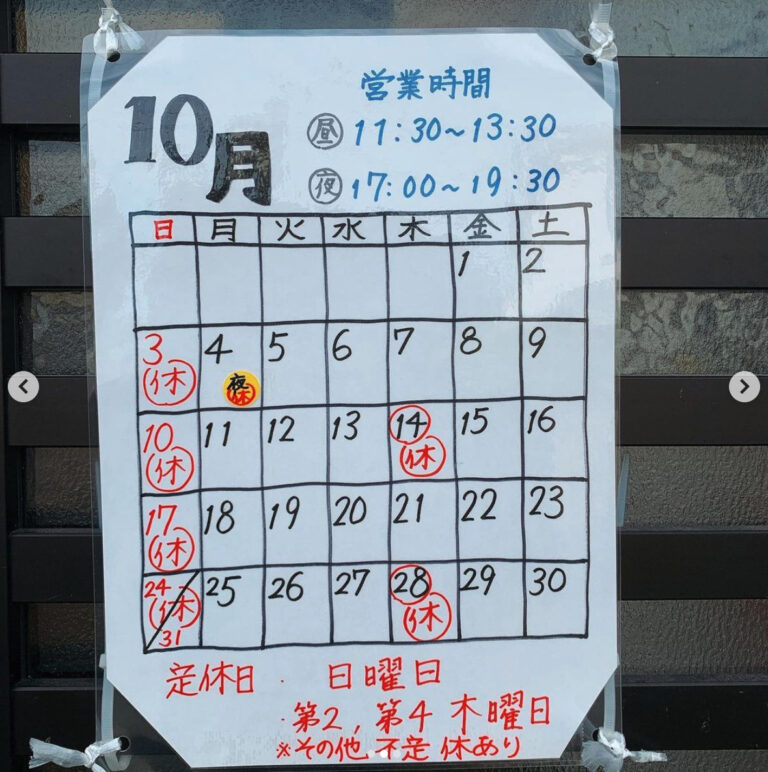 10月
営業時間
昼 11:30～13:30
夜 17:00～19:30
日 月 火 水 木 金 土
1 2
3 4 5 6 7 8 9
休 夜休
10 11 12 13 14 15 16
休 休
17 18 19 20 21 22 23
休
24 25 26 27 28 29 30
休 休
31
定休日・日曜日
・第2,第4木曜日
※その他、不定休あり